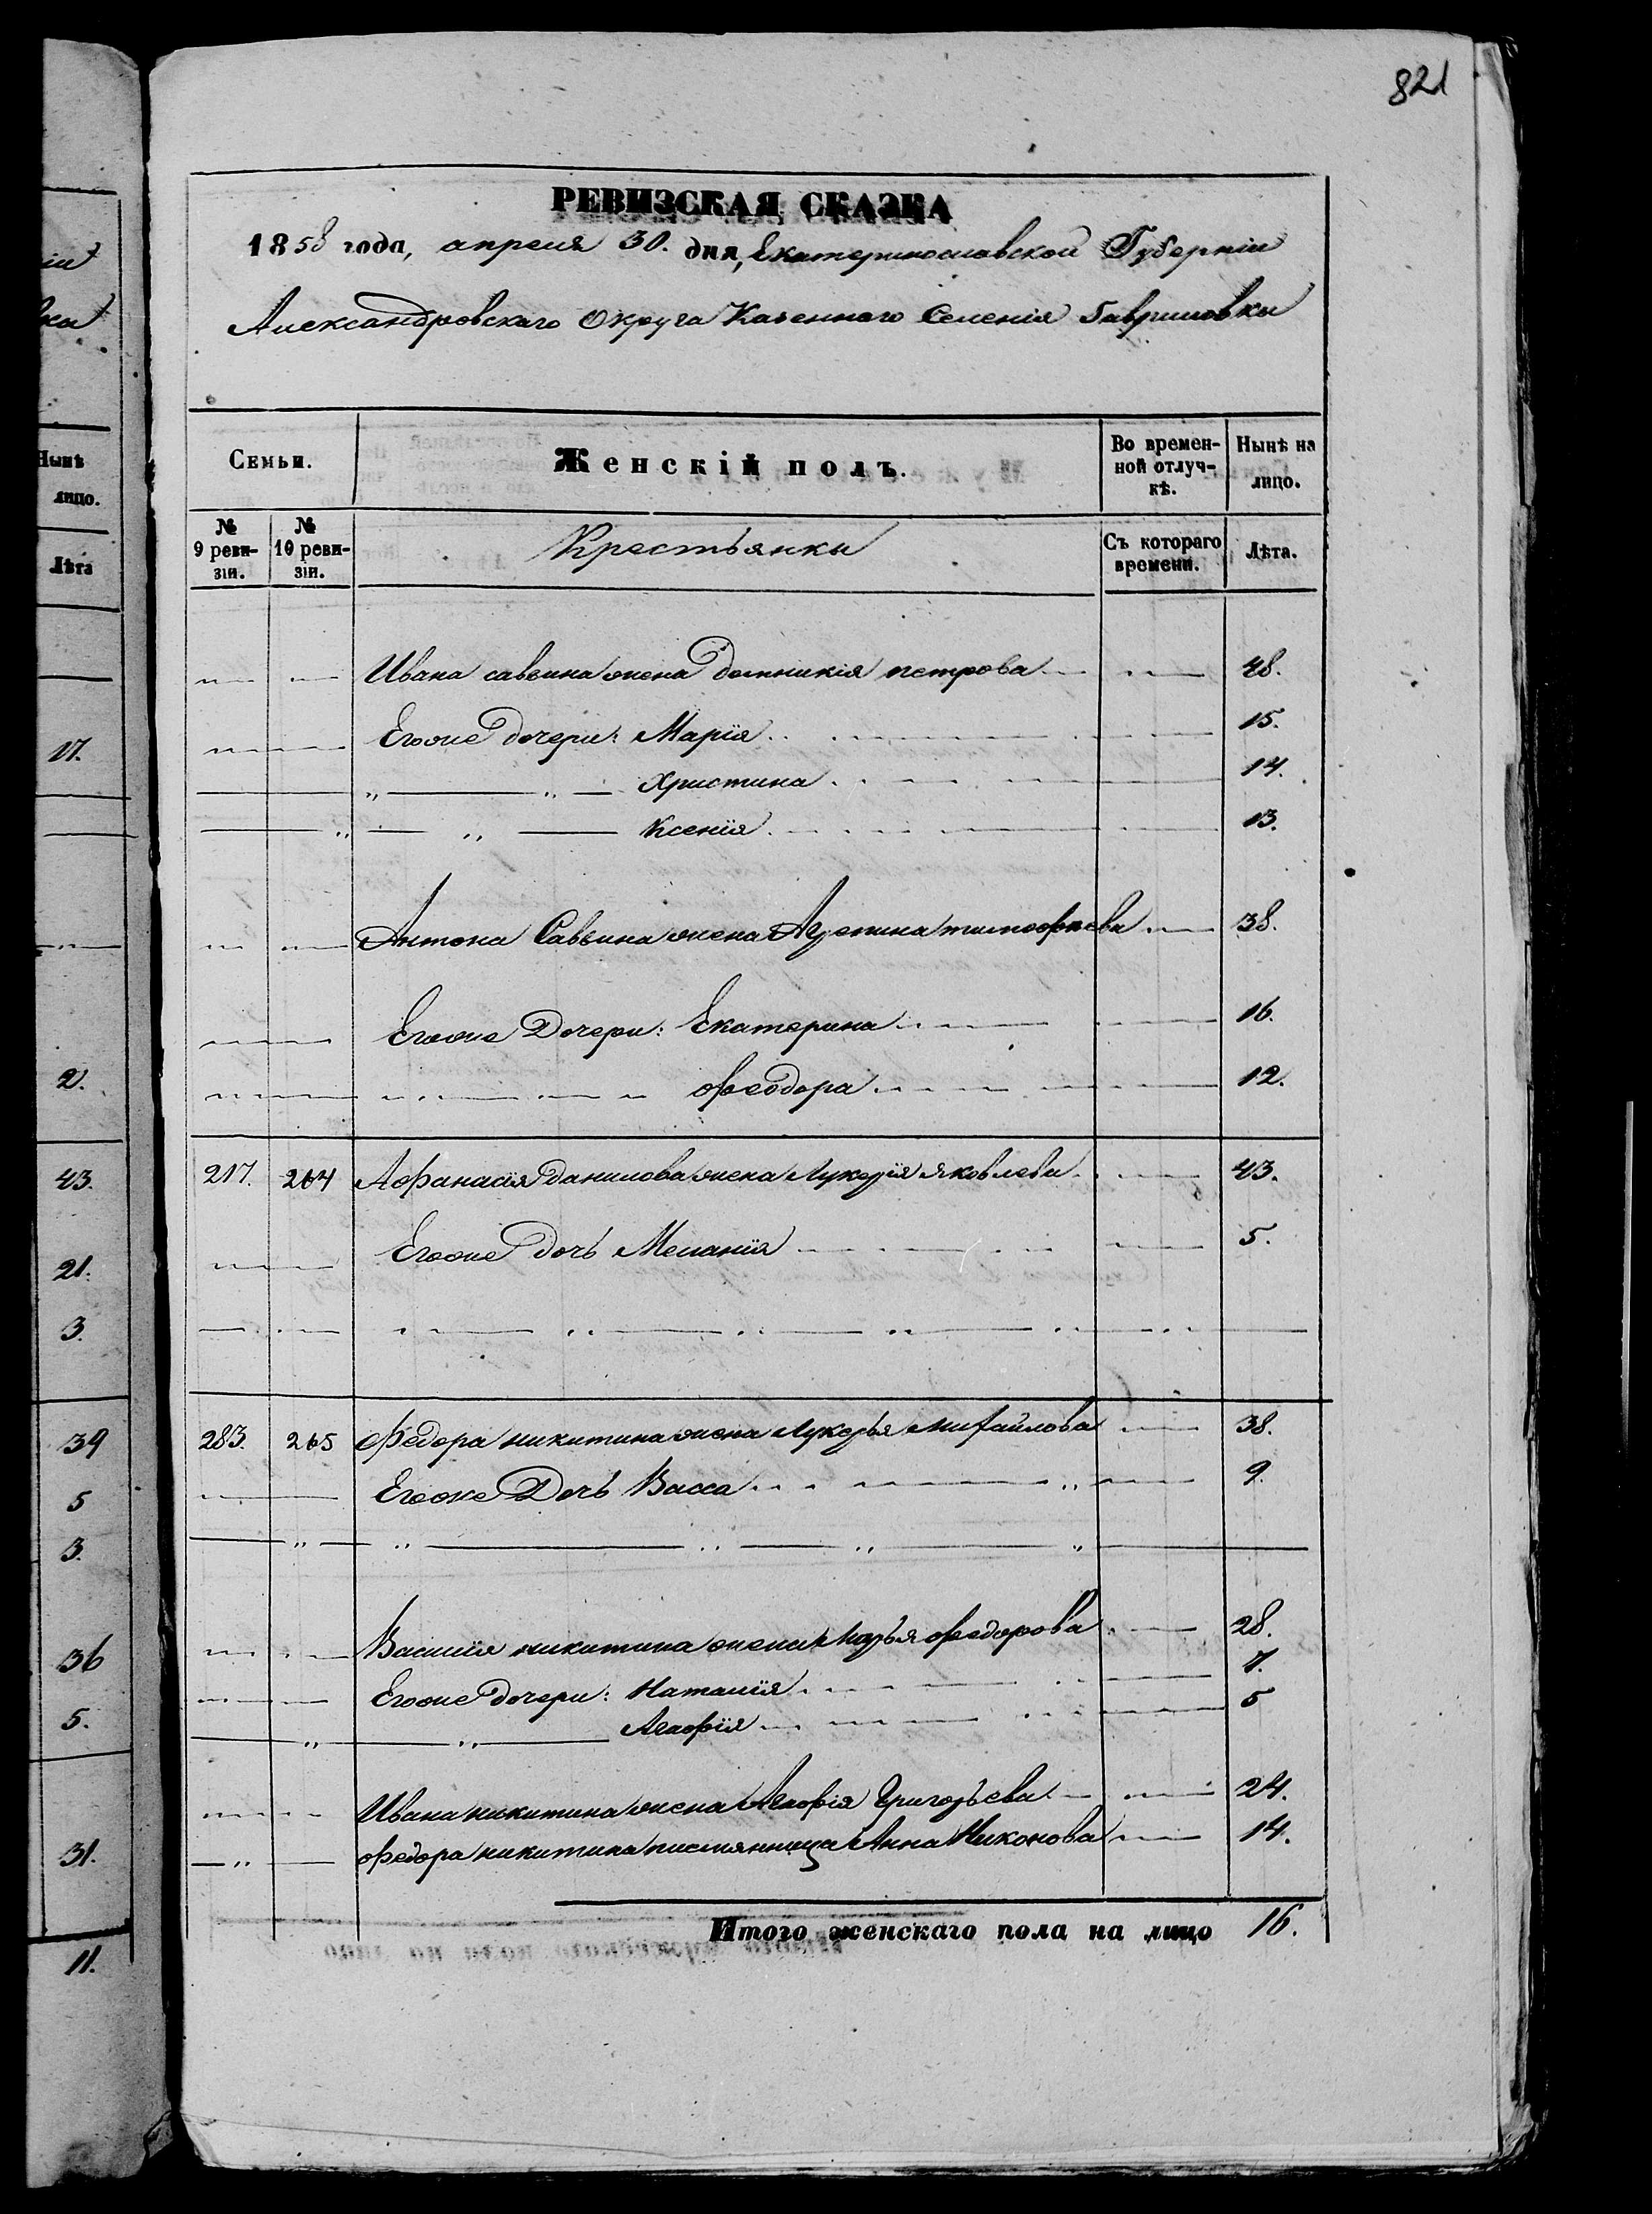 821
РЕВИЗСКАЯ СКАЗКА
1858 года, апреля 30. дня, Екатеринославской Губерніи
Александровскаго Округа Казеннаго Селенія Гавриловки
Семьи. Женскій полъ. Во временной отлучкѣ. Нынѣ на лицо.
№ 9 ревизіи. № 10 ревизіи. Крестьянки Съ котораго времени. Лѣта.
Ивана савеина жена домникія петрова 48.
Егоже дочери: Марія 15.
Христина 14.
Ксенія 13.
Антона Савеина жена Агрепина тимофеева 38.
Егоже Дочери: Екатерина 16.
Феодора 12.
217. 264 Афанасія данилова жена Лукерія яковлева 43.
Егоже дочь Меланія 5.
283. 265 Федора никитина жена Лукерья михайлова 38.
Егоже Дочь Васса 9.
Василія никитина жена Марья федорова 28.
Егоже дочери: Наталія 7.
Агафія 5
Ивана никитина жена Агафія Григорьева 24.
Федора никитина писмянница Анна Никонова 14.
Итого женскаго пола на лицо 16.
Нынѣ
лицо.
Лѣта
17.
2.
43.
21.
3.
39
5
3.
36
5.
31.
11.